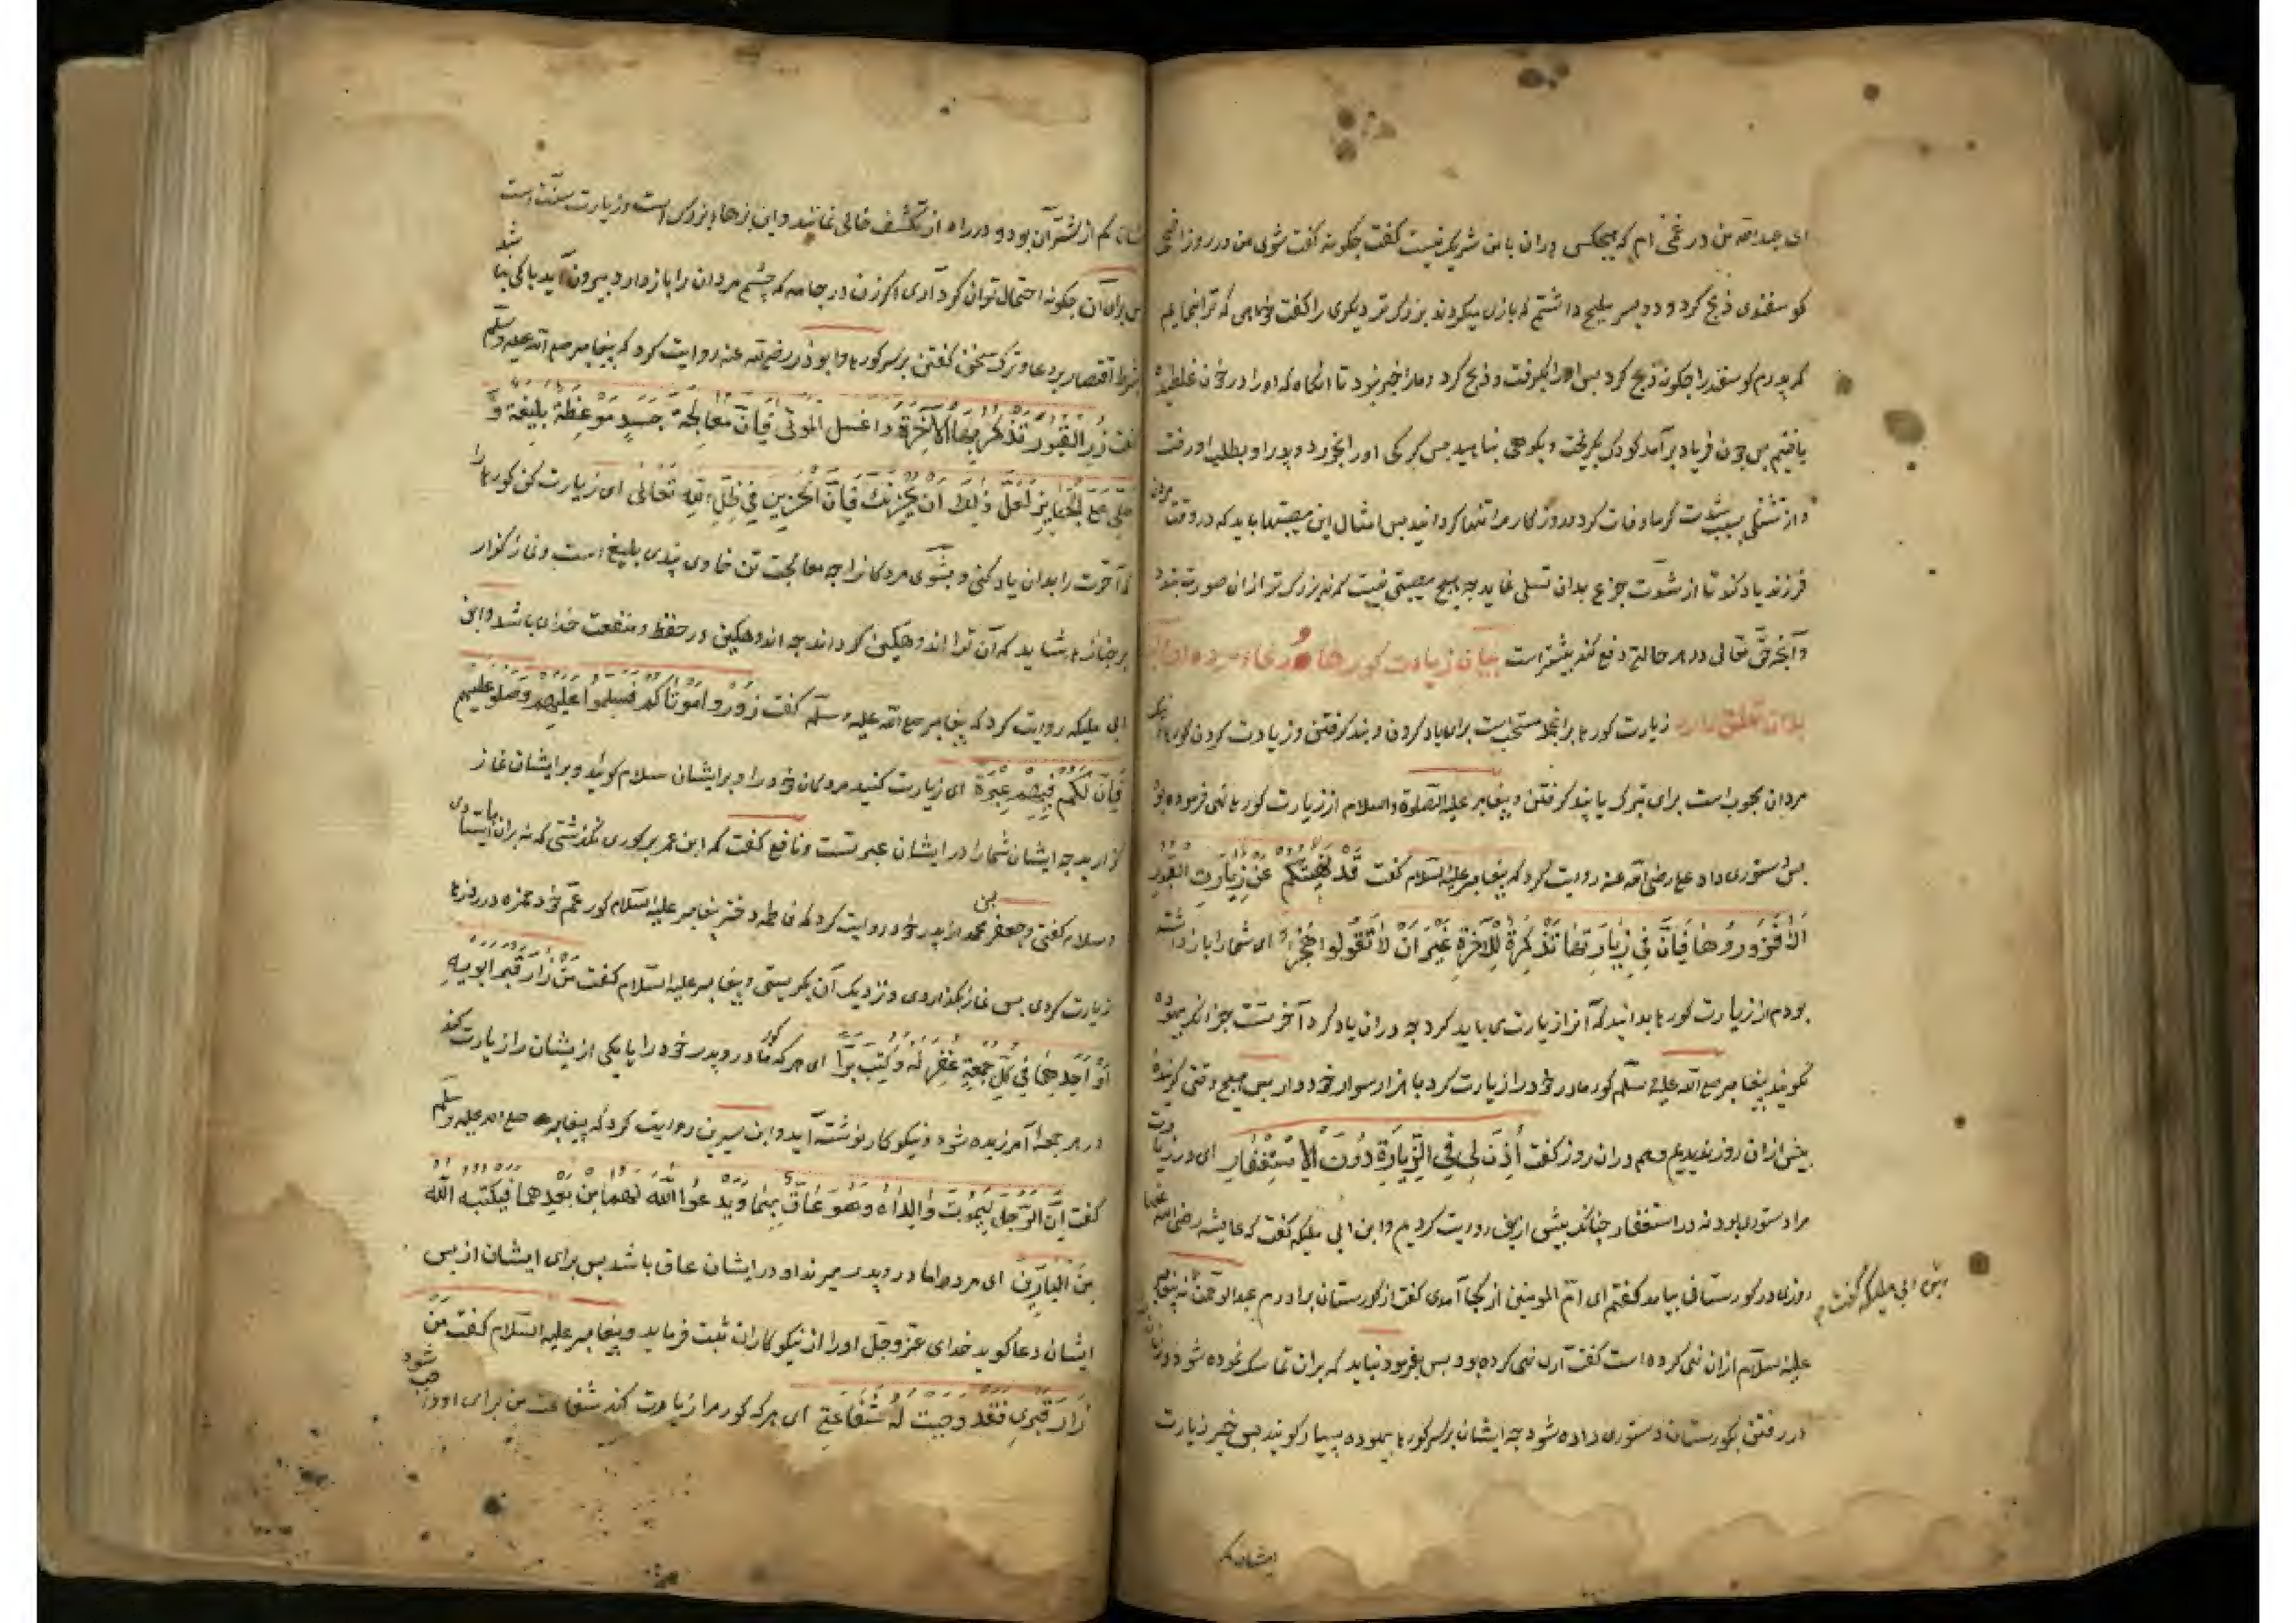 ای عبدالله من در غمی ام که هیچکس دران با من شریک نیست گفت چکونه گفت شوی من در روز اضحی
کوسفندی ذبح کرد و دو پسر ملیح داشتم که بازی میکردند بزرکتر دیکری را گفت خواهی که ترا بنمایم
که پدرم کوسفند را چکونه ذبح کرد پس او را بکرفت و ذبح کرد و ما را خبر نبود تا انکاه که او را در خون غلطیده
یافتیم پس چون فریاد برآمد کودک بکریخت و بکوهی پناهید پس کرکی او را بخورد و پدر او بطلب او رفت
و از تشنکی بسبب شدت کرما وفات کرد و روزکار مرا تنها کردانید پس امثال این مصیبتها باید که در وقت مردن
فرزند یاد کند تا از شدت جزع بدان تسلی نماید چه هیچ مصیبتی نیست که نه بزرک تر ازان صورت بندد
و آنچه حق تعالی در هر حالتی دفع کند بیشتر است بیان زیارت کورها و دعاء مرده و انچه
بدان تعلق دارد زیارت کورها بر انجمله مستحب است برای یاد کردن و پند کرفتن و زیارت کردن کورهای نیک
مردان محبوب است برای تبرک با پند کرفتن و پیغامبر علیه الصلوة والسلام از زیارت کورها نهی فرموده بود
پس دستوری داد علی رضی الله عنه روایت کرد که پیغامبر علیه السلام گفت قَدْ نَهَيْتُكُمْ عَنْ زِيَارَتِ القُبُورِ
اَلَا فَزُورُوهَا فَاِنَّ فِي زِيَارَتِهَا تَذْكِرَةً لِلْآخِرَةِ غَيْرَ اَنْ لَا تَقُولُوا هُجْرًا ای شما را باز داشته
بودم از زیارت کورها بدانید که آنرا زیارت می باید کرد چه دران یاد کرد آخرتست جز انکه بیهوده
نکویند پیغامبر صلی الله علیه وسلم کور مادر خود را زیارت کرد با هزار سوار خود و او را پس هیچ وقتی کرینده
بیش ازان روز ندیدیم و هم دران روز گفت أُذِنَ لِي فِي الزِّيَارَةِ دُونَ الْاِسْتِغْفَارِ ای در زیارت
مرا دستوری بود نه در استغفار چنانکه بیش ازین روایت کردیم و ابن ابی ملیکه گفت که عایشه رضی الله عنها
روزی در کورستانی بیامد گفتم ای ام المومنین از کجا آمدی گفت از کورستان برادرم عبدالرحمن گفتم نه پیغامبر
علیه السلام ازان نهی کرده است گفت آری نهی کرده بود پس بفرمود نباید که بران تماسک نموده شود و زنان را
در رفتن بکورستان دستوری داده شود چه ایشان بر سر کورها بیهوده بسیار کویند پس خیر زیارت
ایشان کم
ابن ابی ملیکه گفت
شان کم از شر آن بود و در راه از تکشف خالی نمانند و این بزها بزرک است و زیارت سنت است
پس برای آن چکونه احتمال توان کرد آری اکر زن در جامه که چشم مردان را باز دارد بیرون آید باکی نباشد
بشرط اقتصار بر دعا و ترک سخن کفتن بر سر کورها و ابوذر رضی الله عنه روایت کرد که پیغامبر صلی الله علیه وسلم
گفت زُرِ القُبُورَ تَذْكُرْ بِهَا الْآخِرَةَ و اغسل الموتى فَاِنَّ مُعَالَجَةَ جَسَدٍ مَوْعِظَةٌ بَلِيغَةٌ وَ
صَلِّ عَلَى الْجَنَايِزِ لَعَلَّ ذٰلِكَ اَنْ يُحْزِنَكَ فَاِنَّ الْحَزِينَ فِي ظِلِّ اللهِ تَعَالٰى ای زیارت کن کورها را
که آخرت را بدان یاد کنی و بشوی مردکانرا چه معالجت تن خاوی پندی بلیغ است و نماز کزار
بر جنازها شاید که آن ترا اندوهکین کرداند چه اندوهکین در حفظ و منفعت خدای باشد و ابن
ابی ملیکه روایت کرد که پیغامبر صلی الله علیه وسلم گفت زُورُوا مَوْتَاكُمْ فَسَلِّمُوا عَلَيْهِمْ وَصَلُّوا عَلَيْهِمْ
فَاِنَّ لَكُمْ فِيهِمْ عِبْرَةً ای زیارت کنید مردکان خود را و بر ایشان سلام کوئید و بر ایشان نماز
کزارید چه ایشان شما را در ایشان عبرتست و نافع گفت که ابن عمر بر کوری نکذشتی که نه بران ایستادی
و سلام گفتی و جعفر بن محمد از پدر خود روایت کرد که فاطمه دختر پیغامبر علیه السلام کور عم خود حمزه در روزها
زیارت کردی پس نماز بکذاردی و نزدیک آن بکریستی و پیغامبر علیه السلام گفت مَنْ زَارَ قَبْرَ اَبَوَيْهِ
اَوْ اَحَدِهِمَا فِي كُلِّ جُمُعَةٍ غُفِرَ لَهُ وَ كُتِبَ بَرًّا ای هر که کور مادر و پدر خود را یا یکی از یشان را زیارت کند
در هر جمعه آمرزیده شود و نیکو کار نوشته آید و ابن سیرین روایت کرد که پیغامبر صلی الله علیه وسلم
گفت اِنَّ الرَّجُلَ لَيَمُوتُ وَالِدَاهُ وَهُوَ عَاقٌّ بِهِمَا وَيَدْعُو اللّٰهَ لَهُمَا مِنْ بَعْدِهِمَا فَيَكْتُبُهُ اللّٰهُ
مِنَ الْبَارِّينَ ای مردم را مادر و پدر میرند او در ایشان عاق باشد پس برای ایشان از پس
ایشان دعا کوید خدای عز و جل او را از نیکو کاران ثبت فرماید و پیغامبر علیه السلام گفت مَنْ
زَارَ قَبْرِي فَقَدْ وَجَبَتْ لَهُ شَفَاعَتِي ای هر که کور مرا زیارت کند شفاعت من برای او واجب شود